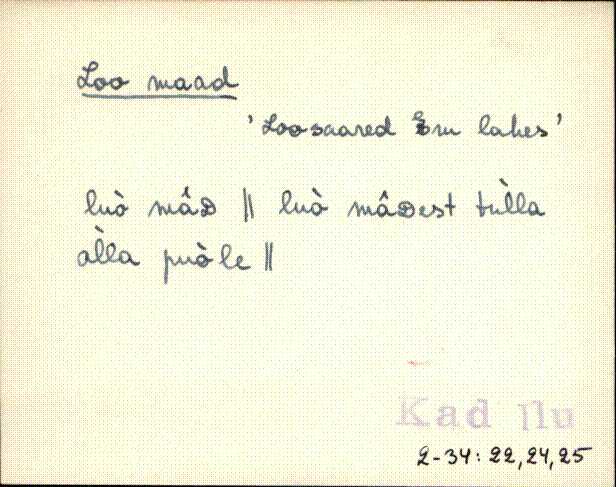 Loo maad
'Loosaared Em lahes'
luò mâᴅ || luò mâᴅest tùlla
àlla puòle ||
Kad Ilu
2-34: 22, 24, 25